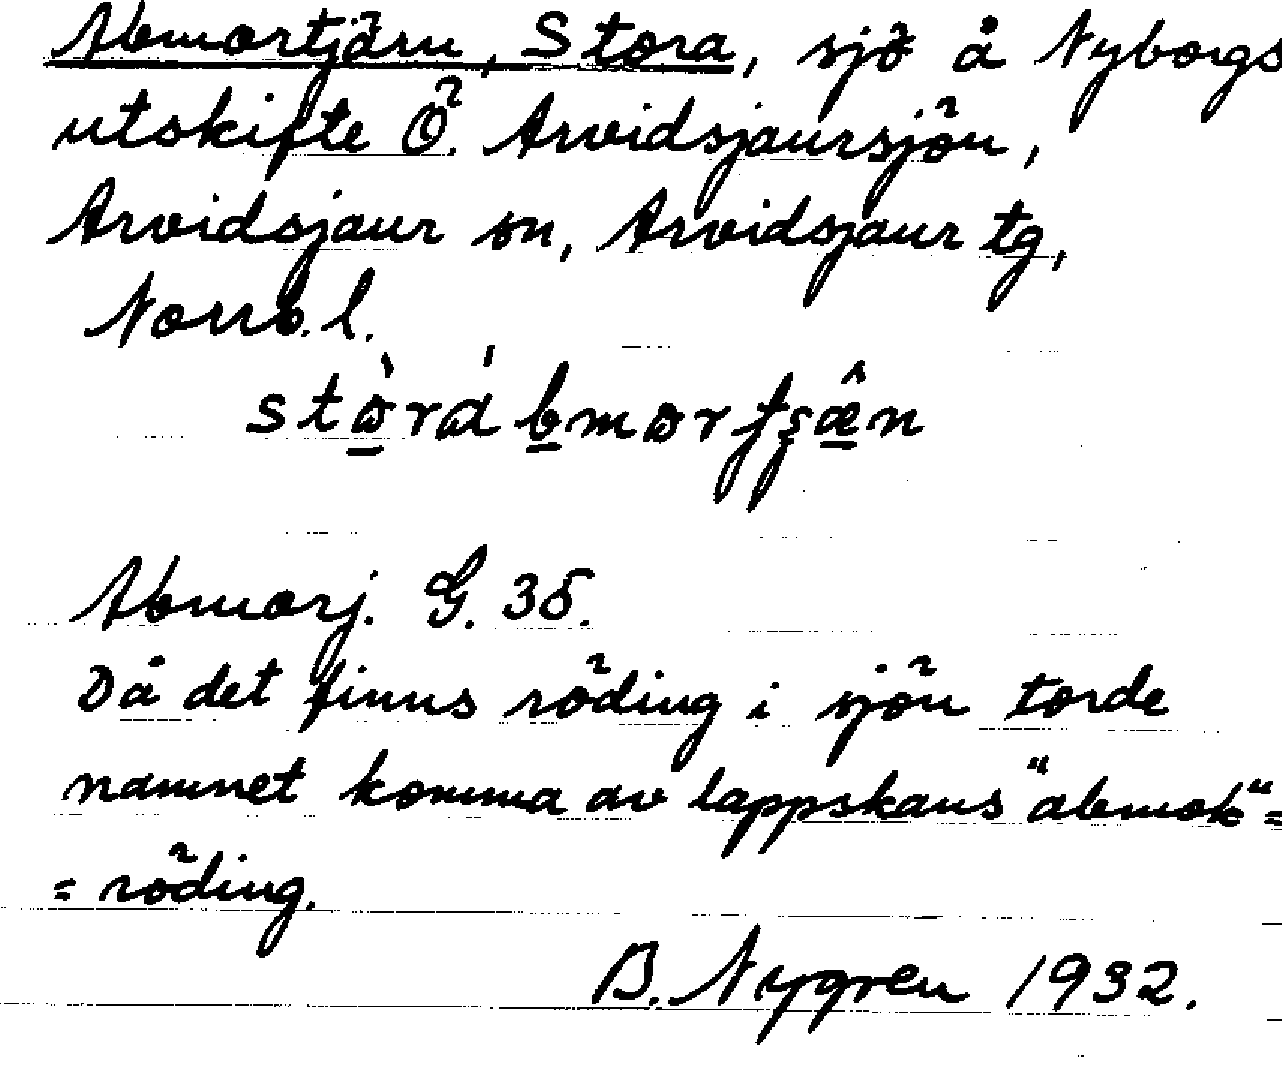 Abmortjärn, Stora, sjö å Nyborgs
utskifte Ö. Arvidsjaursjön,
Arvidsjaur sn, Arvidsjaur tg,
Norrb. l.
Abmorj. G. 35.
Då det finns röding i sjön torde
namnet komma av lappskans "abmok" =
= röding.
B. Nygren 1932.